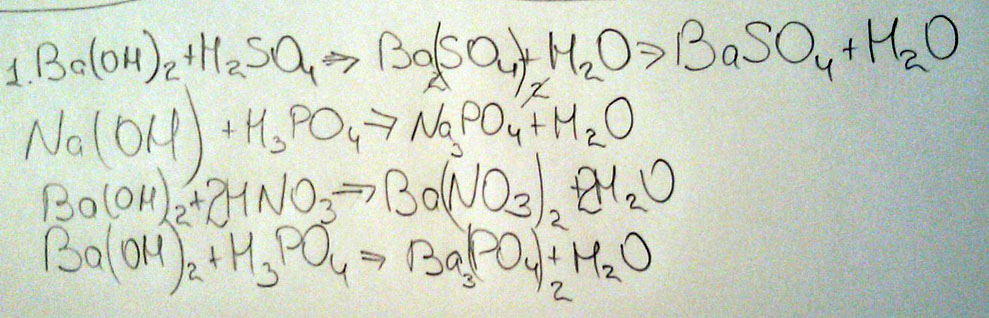 1. Ba(OH)₂+H₂SO₄ ⇒ Ba₂(SO₄)₂+H₂O ⇒ BaSO₄+H₂O
Na(OH)+H₃PO₄ ⇒ Na₃PO₄+H₂O
Ba(OH)₂+2HNO₃ ⇒ Ba(NO₃)₂+2H₂O
Ba(OH)₂+H₃PO₄ ⇒ Ba₃(PO₄)₂+H₂O